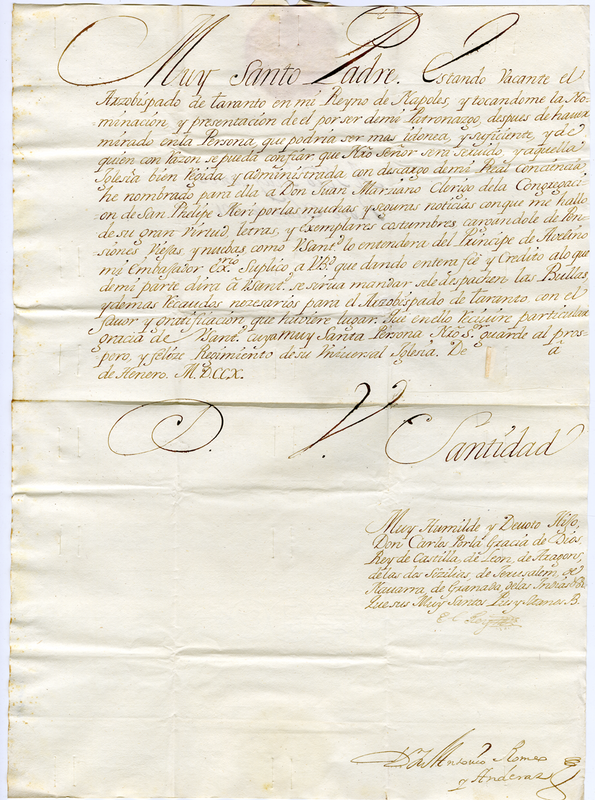 Muy Santo Padre. Estando Vacante el
Arzobispado de taranto en mi Reyno de Napoles, y tocandome la No-
minacion, y presentacion de el por ser demi Patronazgo, despues de hauer
mirado enla Persona, que podria ser mas idonea, y suficiente, y de
quien con razon sepueda confiar que Nro Señor sera seruido, y aquella
Iglesia bien regida y administrada con descargo demi Real Conciencia,
he nombrado para ella a Don Juan Marziano Clerigo dela Congregaci-
on de San Phelipe Neri por las muchas, y seguras noticias conque me hallo
de su gran Virtud, letras, y exemplares costumbres, cargandole de Pen-
siones Viejas, y nuebas, como V Sant.d lo entendera del Principe de Avelino
mi Embaxador Ex.rio Suplico, a V B.d que dando entera feè y Credito alo que
demi parte dira à V Sant.d se sirua mandar sele despachen las Bullas
y demas recaudos nezesarios para el Arzobispado de taranto con el
fauor y gratificacion, que hauiere lugar. Que en ello reciuire particular
gracia de V Sant.d cuya muy Santa Persona Nro S.or guarde al pros-
pero, y felize Regimiento de su Vniuersal Iglesia. De à
de Henero. M.DCCX.
D. V. Santidad
Muy Humilde y Deuoto Hijo,
Don Carlos Porla Gracia de Dios,
Rey de Castilla, de Leon, de Aragon,
delas dos Sizilias, de Jerusalem, de
Nauarra, de Granada, delas Indias &c.
Que sus Muy Santos Pies y Manos B.
El Rey
Dn Antonio Romeo
y Anderaz